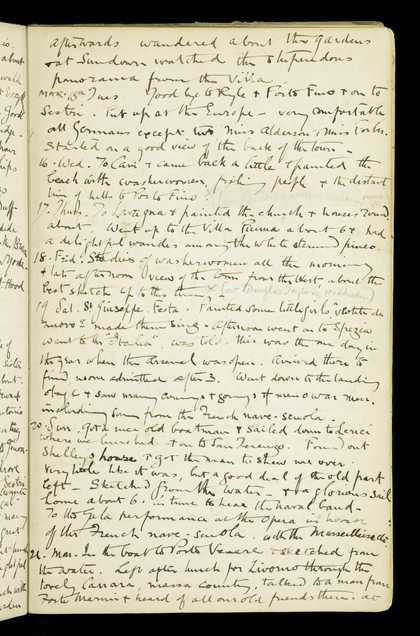 afterwards wandered about the gardens
& at Sundown watched the stupendous
panorama from the Villa.
Tues Good bye to Kyle & Porto Fino & on to
Sestri. Put up at the Europe - very comfortable
all Germans except two Miss Alderson & Miss
Started on a good view of the back of the town -
16. Wed. To Cavi & came back a little & painted the
beach with washerwomen, fishing people & the distant
line of hills to Porto Fino.
17. Thurs. To Lavagna & painted the church & houses round
about. Went up to the Villa about 6 & had
a delightful wander among the white stemmed pines.
18. Fri. Studies of washerwomen all the morning
& late afternoon view of the town from the West, about the
best sketch up to this time -
19. Sat. St Giuseppe. Festa. Painted some little girls
& made them sing - Afternoon went on to Spezia
went to the "Italia". was told this was the one day in
the year when the Arsenal was open. Arrived there to
find none admitted after 3. Went down to the landing
stage & saw many comings & goings of men o' war men,
including some from the French nave-scuola.
20. Sun. Got a nice old boatman & sailed down to Lerici
where we lunched & on to San Terenzo. Found out
Shelley's house & got the man to shew me over.
Very little like it was, but a good deal of the old part
left - Sketched from the water - & had a glorious sail
home about 6. in time to hear the naval band -
To the gala performance at the Opera in honour
of the French nave-scuola. with the Marseillaise etc
21. Mon. In the boat to Porto Venere & sketched from
the water. Left after lunch for Livorno through the
lovely Carrara, Massa country, talked to a man from
Forte Marmi & heard of all our old friends there. at